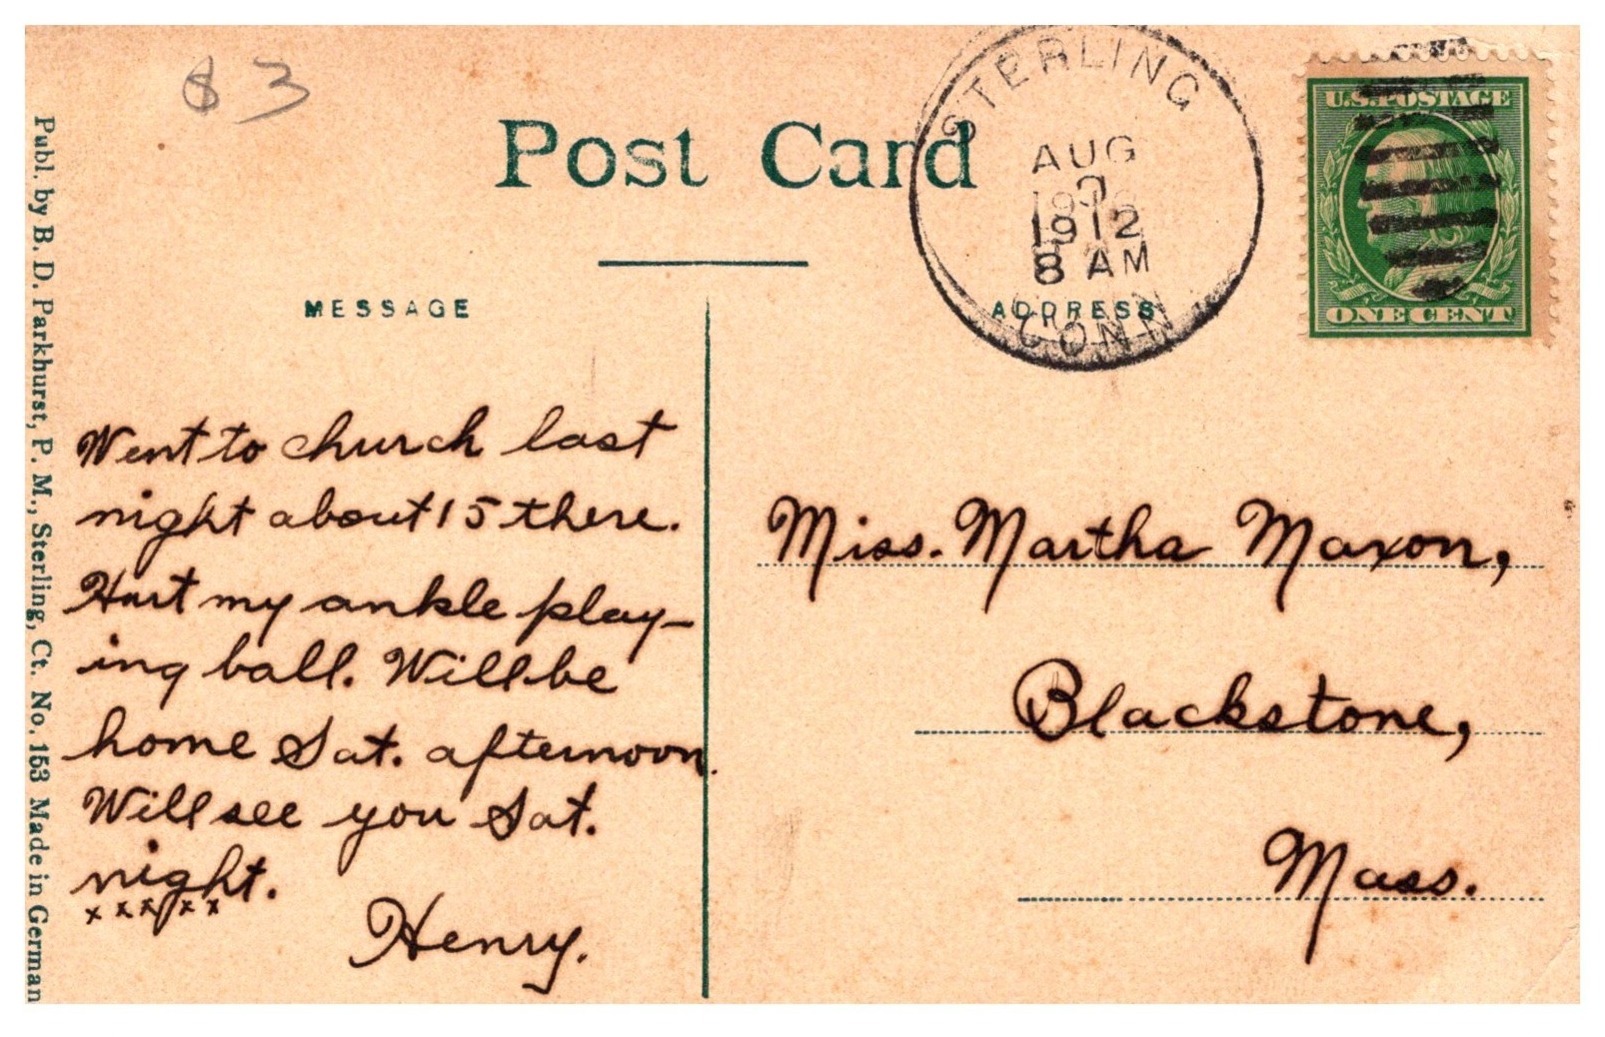 $ 3
Post Card
STERLING
AUG
1912
8 AM
CONN
U.S. POSTAGE
ONE CENT
MESSAGE
ADDRESS
Publ. by B. D. Parkhurst, P. M., Sterling, Ct. No. 153 Made in German
Went to church last
night about 15 there.
Hurt my ankle play-
ing ball. Will be
home Sat. afternoon.
Will see you Sat.
night.
x x x x x
Henry.
Miss. Martha Maxon,
Blackstone,
Mass.